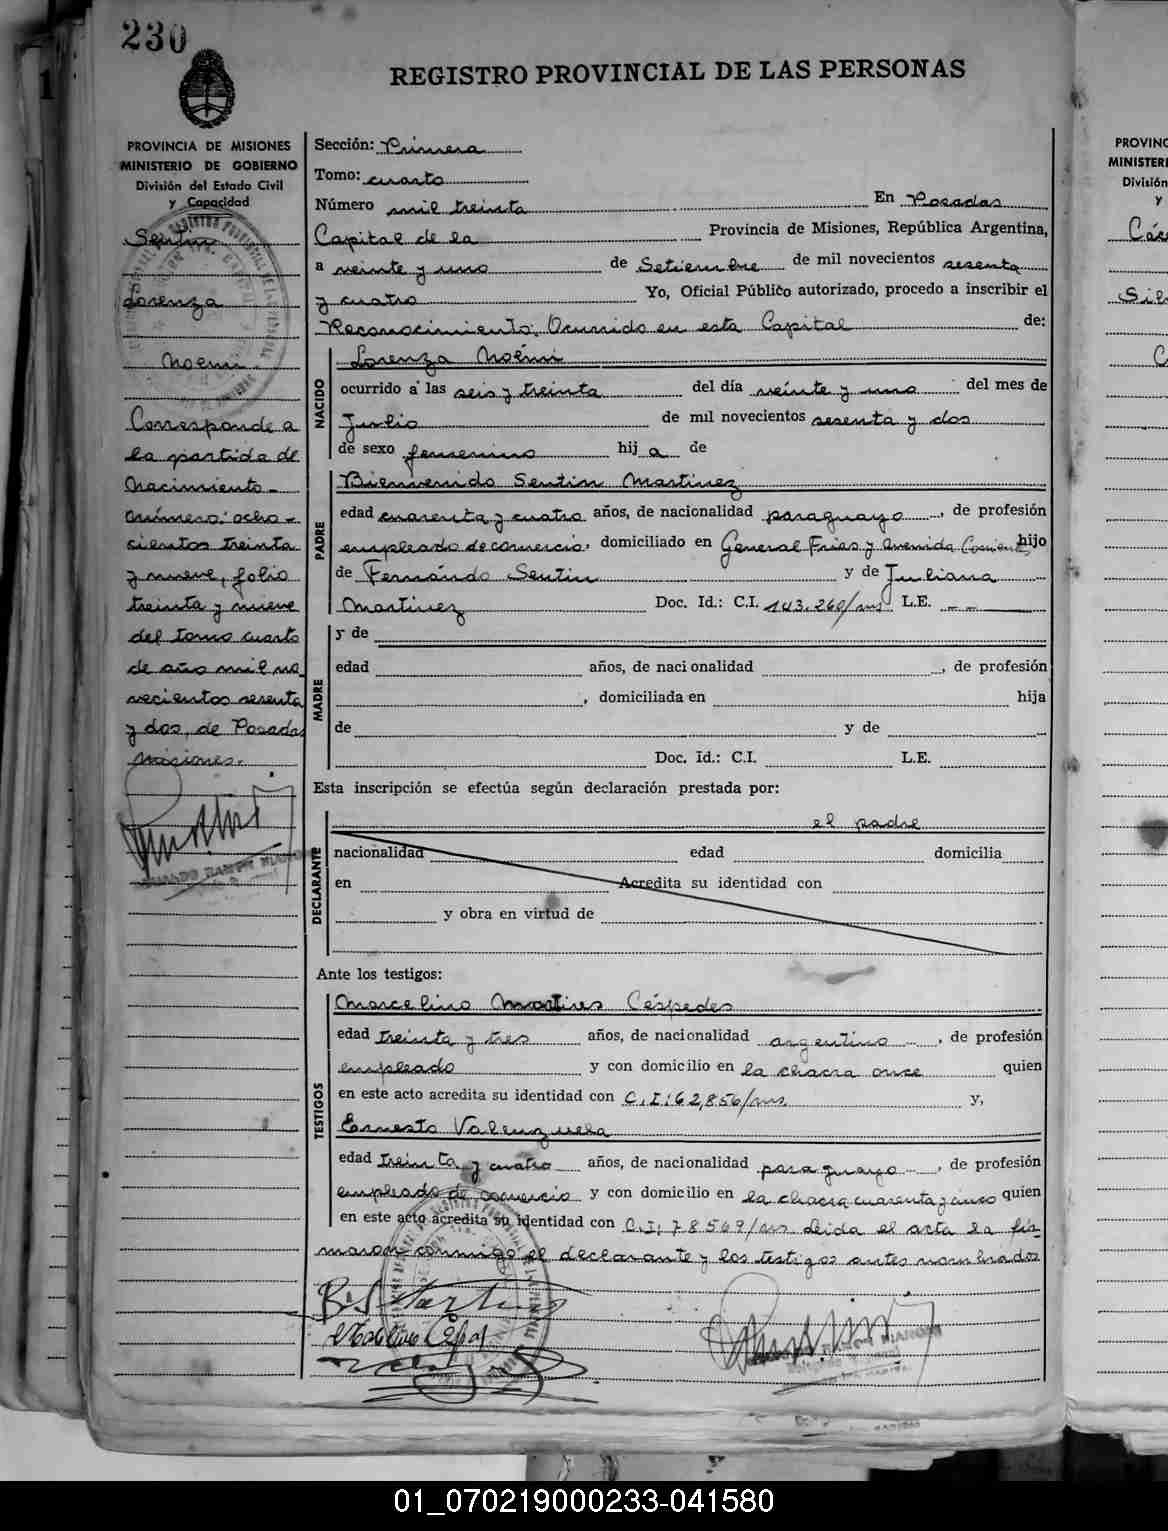 230
REGISTRO PROVINCIAL DE LAS PERSONAS
PROVINCIA DE MISIONES
MINISTERIO DE GOBIERNO
División del Estado Civil
y Capacidad
Sentin
Lorenza
Noemi
Corresponde a
la partida de
Nacimiento-
número: ocho-
cientos treinta
y nueve, folio
treinta y nueve
del tomo cuarto
de año mil no_
vecientos sesenta
y dos, de Posadas
Misiones.
Sección: Primera
Tomo: cuarto
Número mil treinta En Posadas
Capital de la Provincia de Misiones, República Argentina,
a veinte y uno de Setiembre de mil novecientos sesenta
y cuatro Yo, Oficial Público autorizado, procedo a inscribir el
Reconocimiento. Ocurrido en esta Capital de:
NACIDO
Lorenza Noémi
ocurrido a las seis y treinta del día veinte y uno del mes de
Julio de mil novecientos sesenta y dos
de sexo femenino hij a de
PADRE
Bienvenido Sentin Martinez
edad cuarenta y cuatro años, de nacionalidad paraguayo, de profesión
empleado de comercio, domiciliado en General Frias y Avenida Corrientes hijo
de Fernándo Sentin y de Juliana
Martinez Doc. Id.: C.I. 143.260/ms. L.E. - -
MADRE
y de
edad años, de nacionalidad , de profesión
, domiciliada en hija
de y de
Doc. Id.: C.I. L.E.
Esta inscripción se efectúa según declaración prestada por:
el padre
DECLARANTE
nacionalidad edad domicilia
en Acredita su identidad con
y obra en virtud de
Ante los testigos:
TESTIGOS
Marcelino Martires Céspedes
edad treinta y tres años, de nacionalidad argentino, de profesión
empleado y con domicilio en la chacra once quien
en este acto acredita su identidad con C.I: 62,856/ms y,
Ernesto Valenzuela
edad treinta y cuatro años, de nacionalidad paraguayo, de profesión
empleado de comercio y con domicilio en la chacra cuarenta y cinco quien
en este acto acredita su identidad con C.I: 78.569/ms. Leida el acta la fir-
maron conmigo el declarante y los testigos antes nombrados
PROVINC
MINISTERI
División
y
01_070219000233-041580